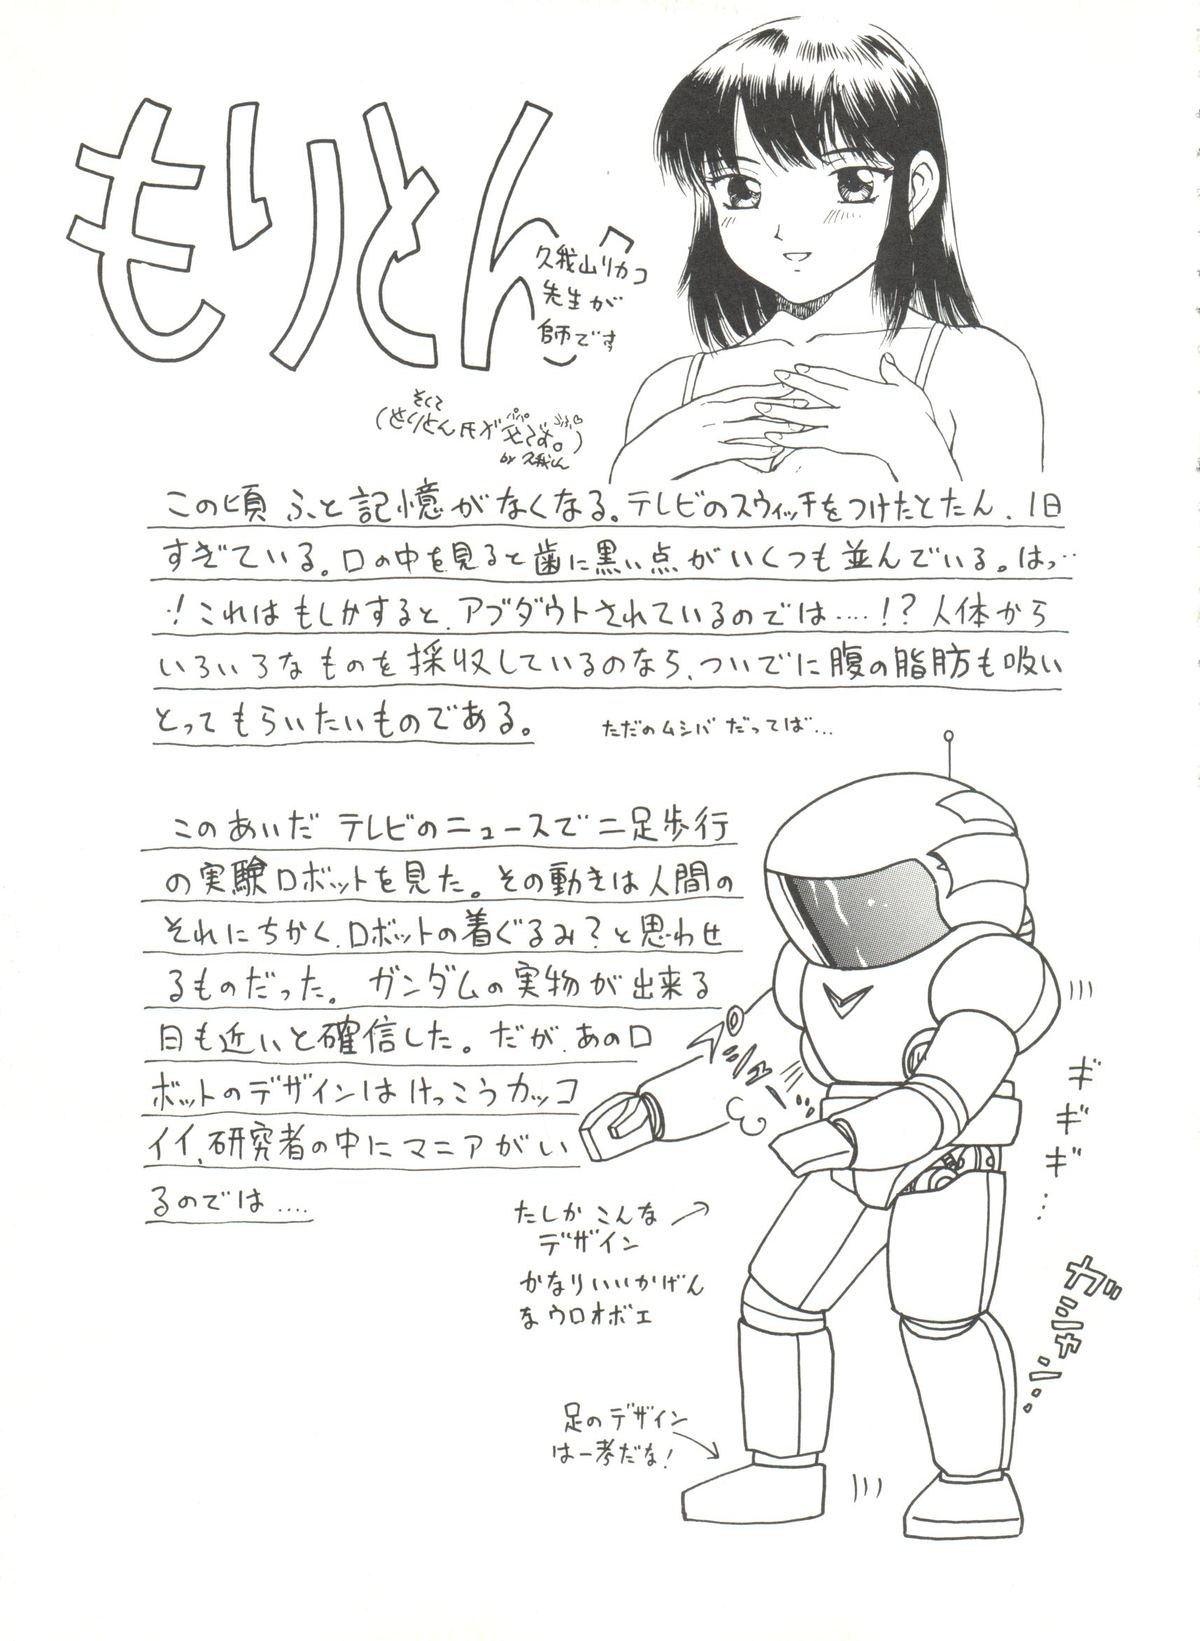 もりとん
久我山リカコ
先生が
師です
そして
(もりとん氏がパパです。)
by 久我くん
この頃 ふと記憶がなくなる。テレビのスウィッチをつけたとたん、1日
すぎている。口の中を見ると歯に黒い点がいくつも並んでいる。はっ‥
‥!これはもしかすると、アブダクトされているのでは‥‥!?人体から
いろいろなものを採収しているのなら、ついでに腹の脂肪も吸い
とってもらいたいものである。
ただのムシバだってば…
このあいだ テレビのニュースで二足歩行
の実験ロボットを見た。その動きは人間の
それにちかく、ロボットの着ぐるみ?と思わせ
るものだった。 ガンダムの実物が出来る
日も近いと確信した。だが、あのロ
ボットのデザインはけっこうカッコ
イイ、研究者の中にマニアがい
るのでは‥‥
プシュー
ギギギ…
たしか こんな
デザイン
かなりいいかげん
なウロオボエ
ガシャン…
足のデザイン
は一考だな!